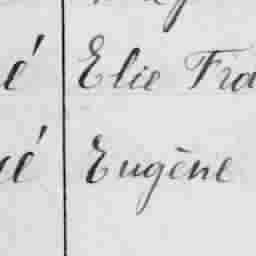 é Elie Fra
é Eugène